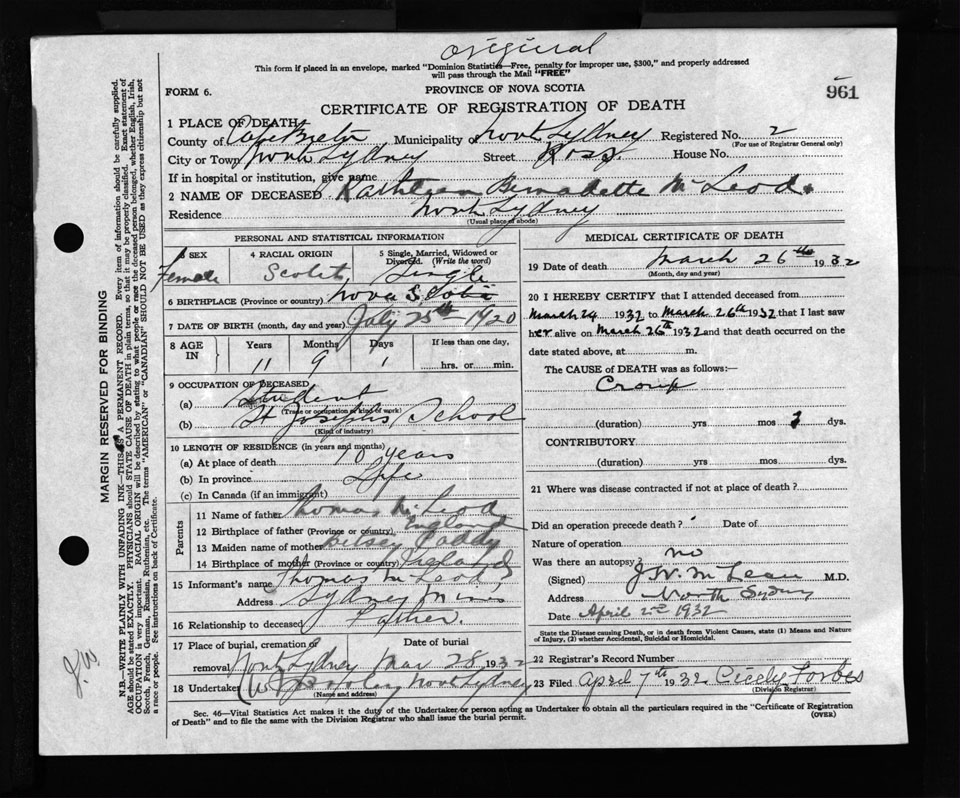 original
This form if placed in an envelope, marked "Dominion Statistics—Free, penalty for improper use, $300," and properly addressed
will pass through the Mail "FREE"
FORM 6.
PROVINCE OF NOVA SCOTIA
961
CERTIFICATE OF REGISTRATION OF DEATH
1 PLACE OF DEATH
County of Cape Breton Municipality of North Sydney Registered No. 2
(For use of Registrar General only)
City or Town North Sydney Street Ross. House No.
If in hospital or institution, give name
2 NAME OF DECEASED Kathleen Bernadette McLeod.
Residence North Sydney
(Usual place of abode)
PERSONAL AND STATISTICAL INFORMATION
3 SEX Female
4 RACIAL ORIGIN Scotch
5 Single, Married, Widowed or Divorced. (Write the word) Single
6 BIRTHPLACE (Province or country) Nova Scotia
7 DATE OF BIRTH (month, day and year) July 25th 1920
8 AGE IN Years Months Days If less than one day,
11 9 1 hrs. or min.
9 OCCUPATION OF DECEASED
(a) Student
(Trade or occupation or kind of work)
(b) St Josephs School
(Kind of industry)
10 LENGTH OF RESIDENCE (in years and months)
(a) At place of death 10 years
(b) In province Life
(c) In Canada (if an immigrant)
Parents
11 Name of father Thomas McLeod
12 Birthplace of father (Province or country) England
13 Maiden name of mother Betsey
14 Birthplace of mother (Province or country) Ireland
15 Informant's name Thomas McLeod
Address Sydney Mines
16 Relationship to deceased Father.
17 Place of burial, cremation or removal North Sydney
Date of burial Mar 28 1932
18 Undertaker North Sydney
(Name and address)
MEDICAL CERTIFICATE OF DEATH
19 Date of death March 26th 1932
(Month, day and year)
20 I HEREBY CERTIFY that I attended deceased from
March 24 1932 to March 26th 1932 that I last saw
her alive on March 26th 1932 and that death occurred on the
date stated above, at m.
The CAUSE of DEATH was as follows:—
Croup
(duration) yrs mos dys.
CONTRIBUTORY
(duration) yrs mos dys.
21 Where was disease contracted if not at place of death?
Did an operation precede death? Date of
Nature of operation
Was there an autopsy no
(Signed) J. W. McLean M.D.
Address North Sydney
Date April 2nd 1932
State the Disease causing Death, or in death from Violent Causes, state (1) Means and Nature
of Injury, (2) whether Accidental, Suicidal or Homicidal.
22 Registrar's Record Number
23 Filed April 7th 1932 Cicely Forbes
(Division Registrar)
Sec. 46—Vital Statistics Act makes it the duty of the Undertaker or person acting as Undertaker to obtain all the particulars required in the "Certificate of Registration
of Death" and to file the same with the Division Registrar who shall issue the burial permit.
(OVER)
MARGIN RESERVED FOR BINDING
N.B.—WRITE PLAINLY WITH UNFADING INK—THIS IS A PERMANENT RECORD. Every item of information should be carefully supplied.
AGE should be stated EXACTLY. PHYSICIANS should STATE CAUSE OF DEATH in plain terms, so that it may be properly classified. Exact statement of
OCCUPATION is very important. RACIAL ORIGIN will be described by stating to what people or race the deceased person belonged, whether English, Irish,
Scotch, French, German, Russian, Ruthenian, etc. The terms "AMERICAN" or "CANADIAN" SHOULD NOT BE USED as they express citizenship but not
a race or people. See instructions on back of Certificate.
J.W.